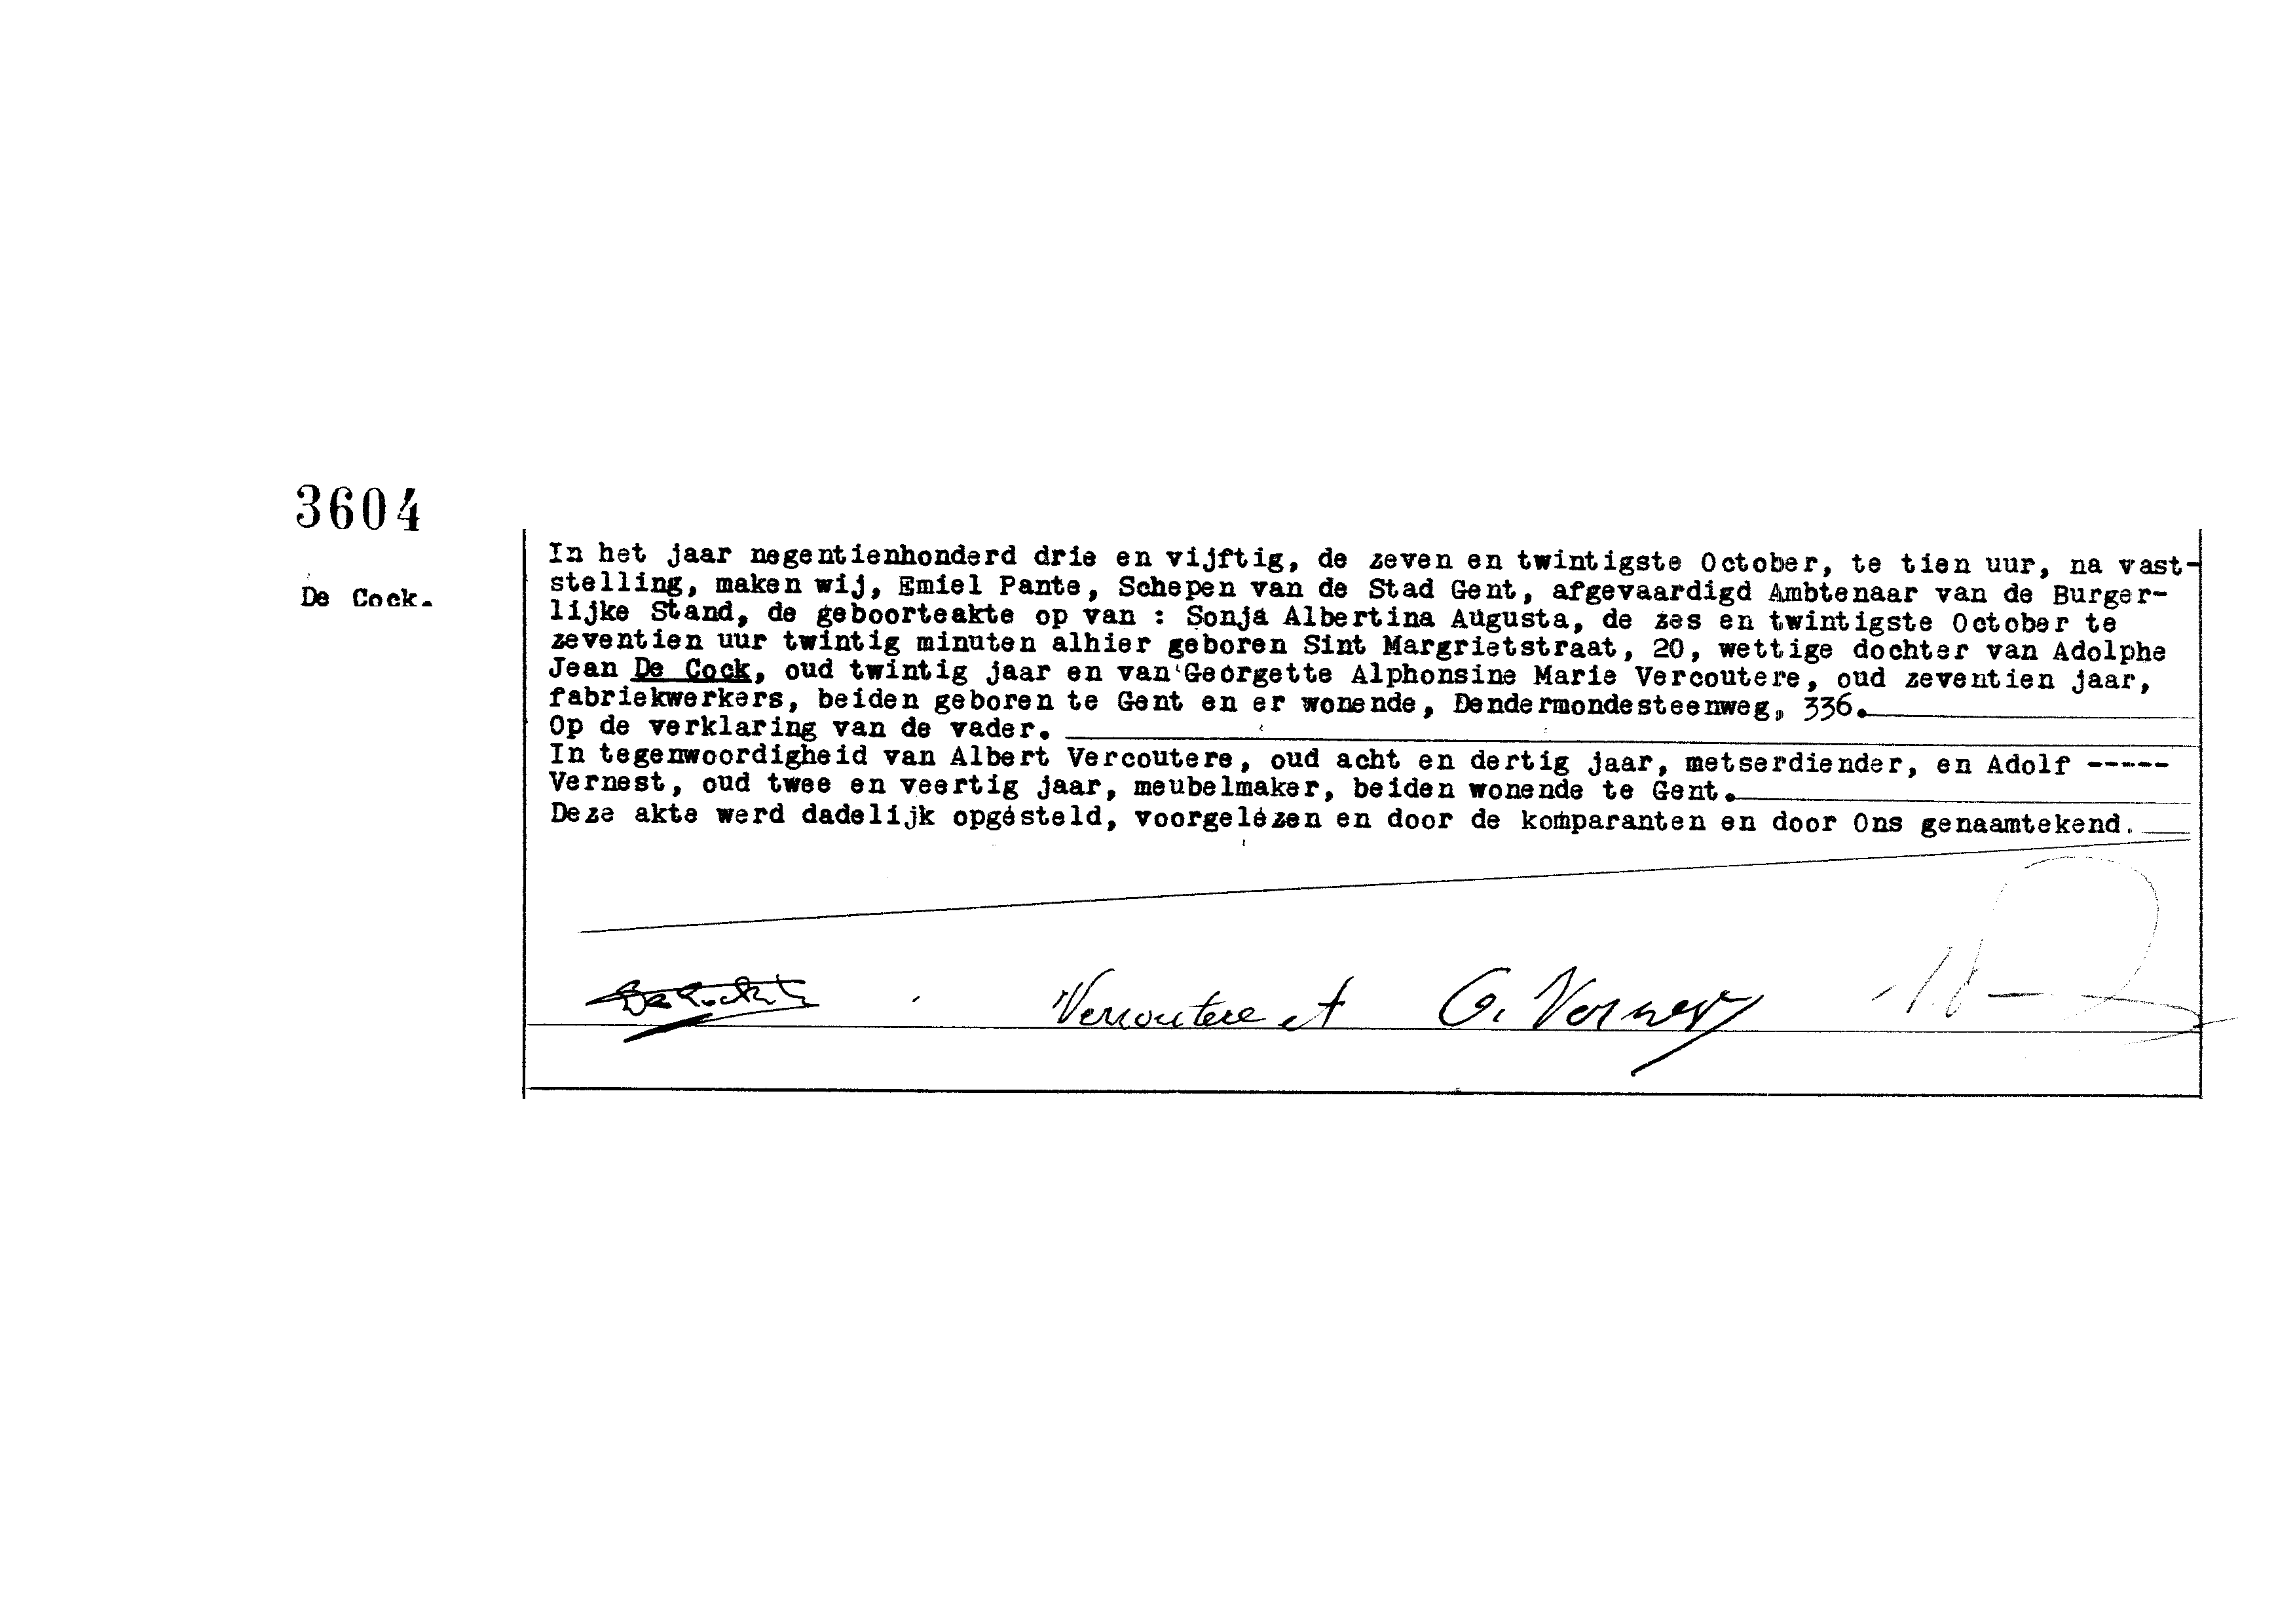 3604
De Cock.
In het jaar negentienhonderd drie en vijftig, de zeven en twintigste October, te tien uur, na vast-
stelling, maken wij, Emiel Pante, Schepen van de Stad Gent, afgevaardigd Ambtenaar van de Burger-
lijke Stand, de geboorteakte op van : Sonja Albertina Augusta, de zes en twintigste October te
zeventien uur twintig minuten alhier geboren Sint Margrietstraat, 20, wettige dochter van Adolphe
Jean De Cock, oud twintig jaar en van Georgette Alphonsine Marie Vercoutere, oud zeventien jaar,
fabriekwerkers, beiden geboren te Gent en er wonende, Dendermondesteenweg, 336.
Op de verklaring van de vader.
In tegenwoordigheid van Albert Vercoutere, oud acht en dertig jaar, metserdiender, en Adolf -----
Vernest, oud twee en veertig jaar, meubelmaker, beiden wonende te Gent.
Deze akte werd dadelijk opgesteld, voorgelezen en door de komparanten en door Ons genaamtekend.
Vercoutere A